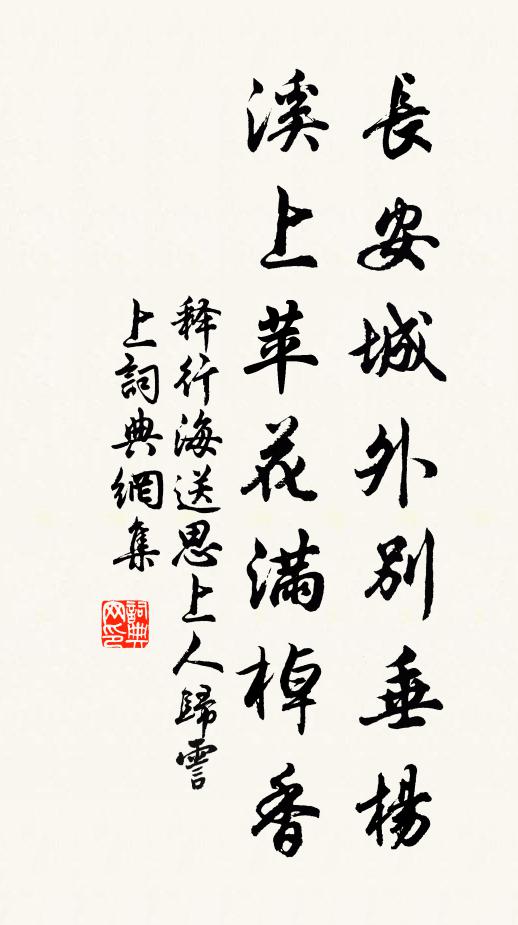 長安城外別垂楊
溪上苹花滿棹香
释行海送思上人歸霅
上詞典網集
詞典
网印